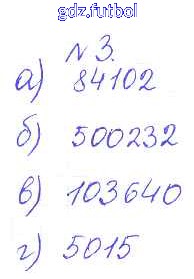 gdz.futbol
N 3.
а) 84102
б) 500232
в) 103640
г) 5015